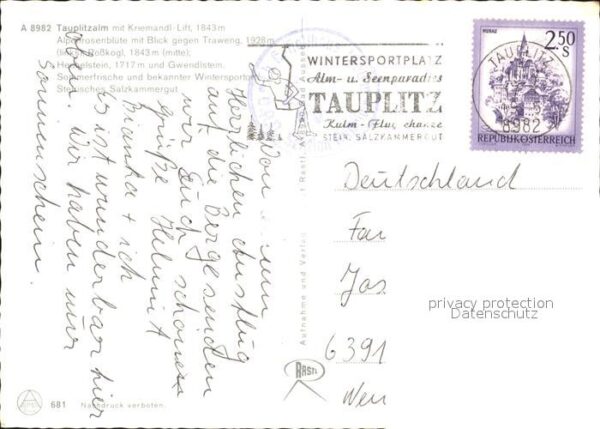 A 8982 Tauplitzalm mit Kriemandl-Lift, 1843 m
Alpenrosenblüte mit Blick gegen Traweng, 1928 m
(links), Roßkogl, 1843 m (mitte),
Hechelstein, 1717 m und Gwendlstein.
Sommerfrische und bekannter Wintersportort
Steirisches Salzkammergut
WINTERSPORTPLATZ
Alm- u. Seenparadies
TAUPLITZ
Kulm - Flugschanze
STEIR. SALZKAMMERGUT
TAUPLITZ
8982
MURAU
2.50 S
REPUBLIK ÖSTERREICH
Von einem
herrlichen Ausflug
auf die Berge senden
wir Euch schöne
Grüße Helmut
Bianka + ich
Es ist wunderbar hier
oben. Wir haben nur
Sonnenschein.
Deutschland
Fa
Jos
6391
privacy protection
Datenschutz
Aufnahme und Verlag
RASTL
681 Nachdruck verboten.